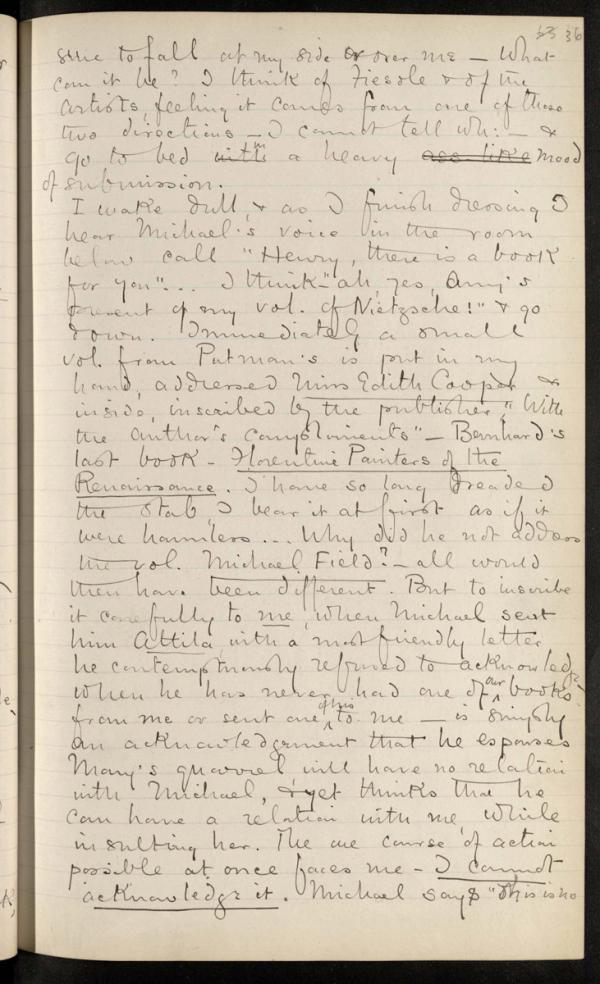 53 36
sure to fall at my side or over me — What
can it be? I think of Fiesole & of the
artists, feeling it comes from one of those
two directions — I cannot tell wh: — &
go to bed with in a heavy ass like mood
of submission.
I wake dull, & as I finish dressing I
hear Michael's voice in the room
below call "Henry, there is a book
for you"... I think "ah, yes, Amy's
present of my vol. of Nietzsche!" & go
down. Immediately a small
vol. from Putman's is put in my
hand, addressed Miss Edith Cooper &
inside, inscribed by the publisher, "With
the author's compliments" — Bernhard's
last book — Florentine Painters of the
Renaissance. I have so long dreaded
the stab, I bear it at first as if it
were harmless... Why did he not address
the vol. Michael Field? — all would
then have been different. But to inscribe
it carefully to me, when Michael sent
him Attila with a most friendly letter
he contemptuously refused to acknowledge
when he has never had one of our books
from me or sent one of his to me — is simply
an acknowledgement that he espouses
Mary's quarrel, will have no relation
with Michael, & yet thinks that he
can have a relation with me, while
insulting her. The one course of action
possible at once faces me — I cannot
acknowledge it. Michael says "This is no